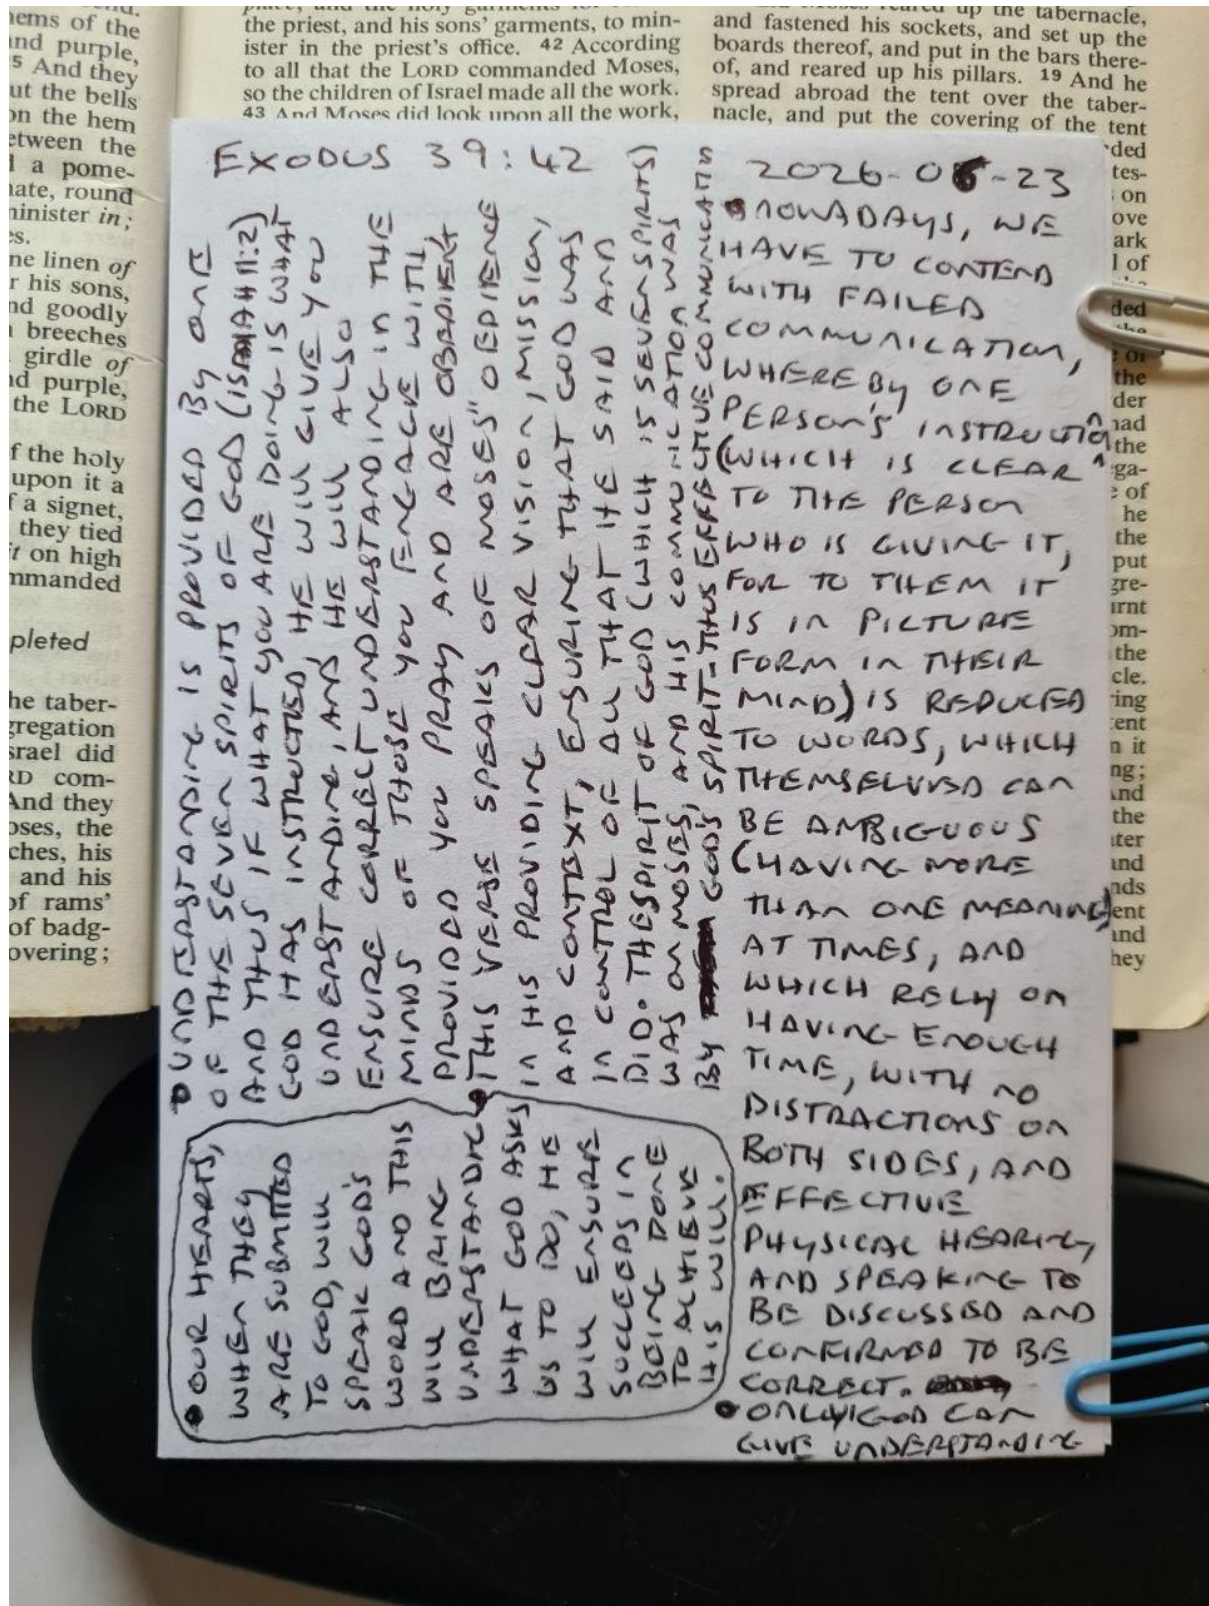 ems of the
and purple,
5 And they
ut the bells
on the hem
etween the
a pome-
nate, round
minister in;
s.
ne linen of
r his sons,
nd goodly
breeches
girdle of
nd purple,
the LORD
f the holy
upon it a
f a signet,
they tied
it on high
mmanded
pleted
he taber-
gregation
srael did
RD com-
And they
oses, the
ches, his
and his
of rams'
of badg-
overing;
the priest, and his sons' garments, to min-
ister in the priest's office. 42 According
to all that the LORD commanded Moses,
so the children of Israel made all the work.
43 And Moses did look upon all the work,
up the tabernacle,
and fastened his sockets, and set up the
boards thereof, and put in the bars there-
of, and reared up his pillars. 19 And he
spread abroad the tent over the taber-
nacle, and put the covering of the tent
EXODUS 39:42
2026-06-23
NOWADAYS, WE
HAVE TO CONTEND
WITH FAILED
COMMUNICATION,
WHEREBY ONE
PERSON'S INSTRUCTION
(WHICH IS CLEAR
TO THE PERSON
WHO IS GIVING IT,
FOR TO THEM IT
IS IN PICTURE
FORM IN THEIR
MIND) IS REDUCED
TO WORDS, WHICH
THEMSELVES CAN
BE AMBIGUOUS
(HAVING MORE
THAN ONE MEANING)
AT TIMES, AND
WHICH RELY ON
HAVING ENOUGH
TIME, WITH NO
DISTRACTIONS ON
BOTH SIDES, AND
EFFECTIVE
PHYSICAL HEARING,
AND SPEAKING TO
BE DISCUSSED AND
CONFIRMED TO BE
CORRECT.
• ONLY GOD CAN
GIVE UNDERSTANDING
• UNDERSTANDING IS PROVIDED BY ONE
OF THE SEVEN SPIRITS OF GOD (ISAIAH 11:2)
AND THUS IF WHAT YOU ARE DOING IS WHAT
GOD HAS INSTRUCTED, HE WILL GIVE YOU
UNDERSTANDING, AND HE WILL ALSO
ENSURE CORRECT UNDERSTANDING IN THE
MINDS OF THOSE YOU ENGAGE WITH,
PROVIDED YOU PRAY AND ARE OBEDIENT
• THIS VERSE SPEAKS OF MOSES' OBEDIENCE
IN HIS PROVIDING CLEAR VISION, MISSION,
AND CONTEXT, ENSURING THAT GOD WAS
IN CONTROL OF ALL THAT HE SAID AND
DID. THE SPIRIT OF GOD (WHICH IS SEVEN SPIRITS)
WAS ON MOSES, AND HIS COMMUNICATION WAS
BY GOD'S SPIRIT-THUS EFFECTIVE COMMUNICATION
• OUR HEARTS,
WHEN THEY
ARE SUBMITTED
TO GOD, WILL
SPEAK GOD'S
WORD AND THIS
WILL BRING
UNDERSTANDING
• WHAT GOD ASKS
US TO DO, HE
WILL ENSURE
SUCCEEDS IN
BEING DONE
TO ACHIEVE
HIS WILL.
ded
tes-
on
ove
ark
l of
ded
the
der
had
the
ega-
of
he
the
put
gre-
urnt
om-
the
cle.
ring
tent
n it
ng;
And
the
ter
and
nds
ent
and
hey